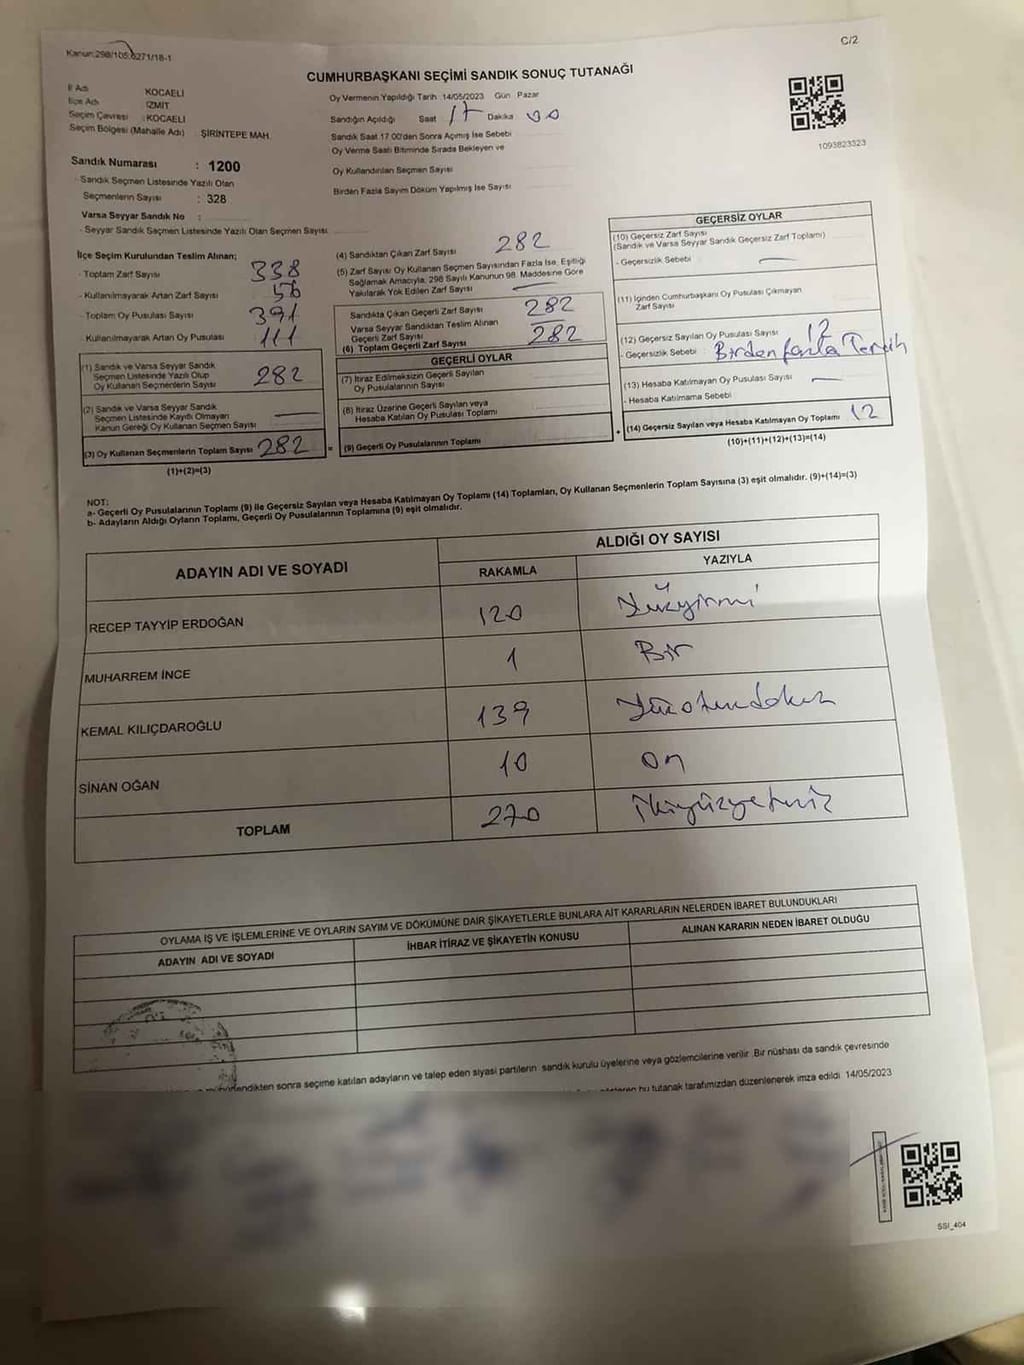 Kanun:298/105,6271/18-1
C/2
CUMHURBAŞKANI SEÇİMİ SANDIK SONUÇ TUTANAĞI
İl Adı : KOCAELİ
İlçe Adı : İZMİT
Seçim Çevresi : KOCAELİ
Seçim Bölgesi (Mahalle Adı) ŞİRİNTEPE MAH.
Sandık Numarası : 1200
- Sandık Seçmen Listesinde Yazılı Olan
Seçmenlerin Sayısı : 328
Varsa Seyyar Sandık No :
- Seyyar Sandık Seçmen Listesinde Yazılı Olan Seçmen Sayısı
Oy Vermenin Yapıldığı Tarih 14/05/2023 Gün Pazar
Sandığın Açıldığı Saat 17 Dakika
Sandık Saat 17.00'den Sonra Açımış İse Sebebi
Oy Verme Saati Bitiminde Sırada Bekleyen ve
Oy Kullandırılan Seçmen Sayısı
Birden Fazla Sayım Döküm Yapılmış İse Sayısı
1093823323
İlçe Seçim Kurulundan Teslim Alınan;
- Toplam Zarf Sayısı 338
- Kullanılmayarak Artan Zarf Sayısı 56
- Toplam Oy Pusulası Sayısı 391
- Kullanılmayarak Artan Oy Pusulası 111
(1) Sandık ve Varsa Seyyar Sandık
Seçmen Listesinde Yazılı Olup
Oy Kullanan Seçmenlerin Sayısı 282
(2) Sandık ve Varsa Seyyar Sandık
Seçmen Listesinde Kayıtlı Olmayan
Kanun Gereği Oy Kullanan Seçmen Sayısı
(3) Oy Kullanan Seçmenlerin Toplam Sayısı 282
(1)+(2)=(3)
(4) Sandıktan Çıkan Zarf Sayısı 282
(5) Zarf Sayısı Oy Kullanan Seçmen Sayısından Fazla İse, Eşitliği
Sağlamak Amacıyla, 298 Sayılı Kanunun 98. Maddesine Göre
Yakılarak Yok Edilen Zarf Sayısı
Sandıkta Çıkan Geçerli Zarf Sayısı 282
Varsa Seyyar Sandıktan Teslim Alınan
Geçerli Zarf Sayısı
(6) Toplam Geçerli Zarf Sayısı 282
GEÇERLİ OYLAR
(7) İtiraz Edilmeksizin Geçerli Sayılan
Oy Pusulalarının Sayısı
(8) İtiraz Üzerine Geçerli Sayılan veya
Hesaba Katılan Oy Pusulası Toplamı
= (9) Geçerli Oy Pusulalarının Toplamı
GEÇERSİZ OYLAR
(10) Geçersiz Zarf Sayısı
(Sandık ve Varsa Seyyar Sandık Geçersiz Zarf Toplamı)
- Geçersizlik Sebebi
(11) İçinden Cumhurbaşkanı Oy Pusulası Çıkmayan
Zarf Sayısı
(12) Geçersiz Sayılan Oy Pusulası Sayısı 12
- Geçersizlik Sebebi Birden fazla Tercih
(13) Hesaba Katılmayan Oy Pusulası Sayısı
- Hesaba Katılmama Sebebi
+ (14) Geçersiz Sayılan veya Hesaba Katılmayan Oy Toplamı 12
(10)+(11)+(12)+(13)=(14)
NOT:
a- Geçerli Oy Pusulalarının Toplamı (9) ile Geçersiz Sayılan veya Hesaba Katılmayan Oy Toplamı (14) Toplamları, Oy Kullanan Seçmenlerin Toplam Sayısına (3) eşit olmalıdır. (9)+(14)=(3)
b- Adayların Aldığı Oyların Toplamı, Geçerli Oy Pusulalarının Toplamına (9) eşit olmalıdır.
ADAYIN ADI VE SOYADI
ALDIĞI OY SAYISI
RAKAMLA YAZIYLA
RECEP TAYYİP ERDOĞAN 120 Yüzyirmi
MUHARREM İNCE 1 Bir
KEMAL KILIÇDAROĞLU 139 Yüzotuzdokuz
SİNAN OĞAN 10 on
TOPLAM 270 ikiyüzyetmiş
OYLAMA İŞ VE İŞLEMLERİNE VE OYLARIN SAYIM VE DÖKÜMÜNE DAİR ŞİKAYETLERLE BUNLARA AİT KARARLARIN NELERDEN İBARET BULUNDUKLARI
ADAYIN ADI VE SOYADI İHBAR İTİRAZ VE ŞİKAYETİN KONUSU ALINAN KARARIN NEDEN İBARET OLDUĞU
sonra seçime katılan adayların ve talep eden siyasi partilerin sandık kurulu üyelerine veya gözlemcilerine verilir. Bir nüshası da sandık çevresinde
bu tutanak tarafımızdan düzenlenerek imza edildi 14/05/2023
SSI_404